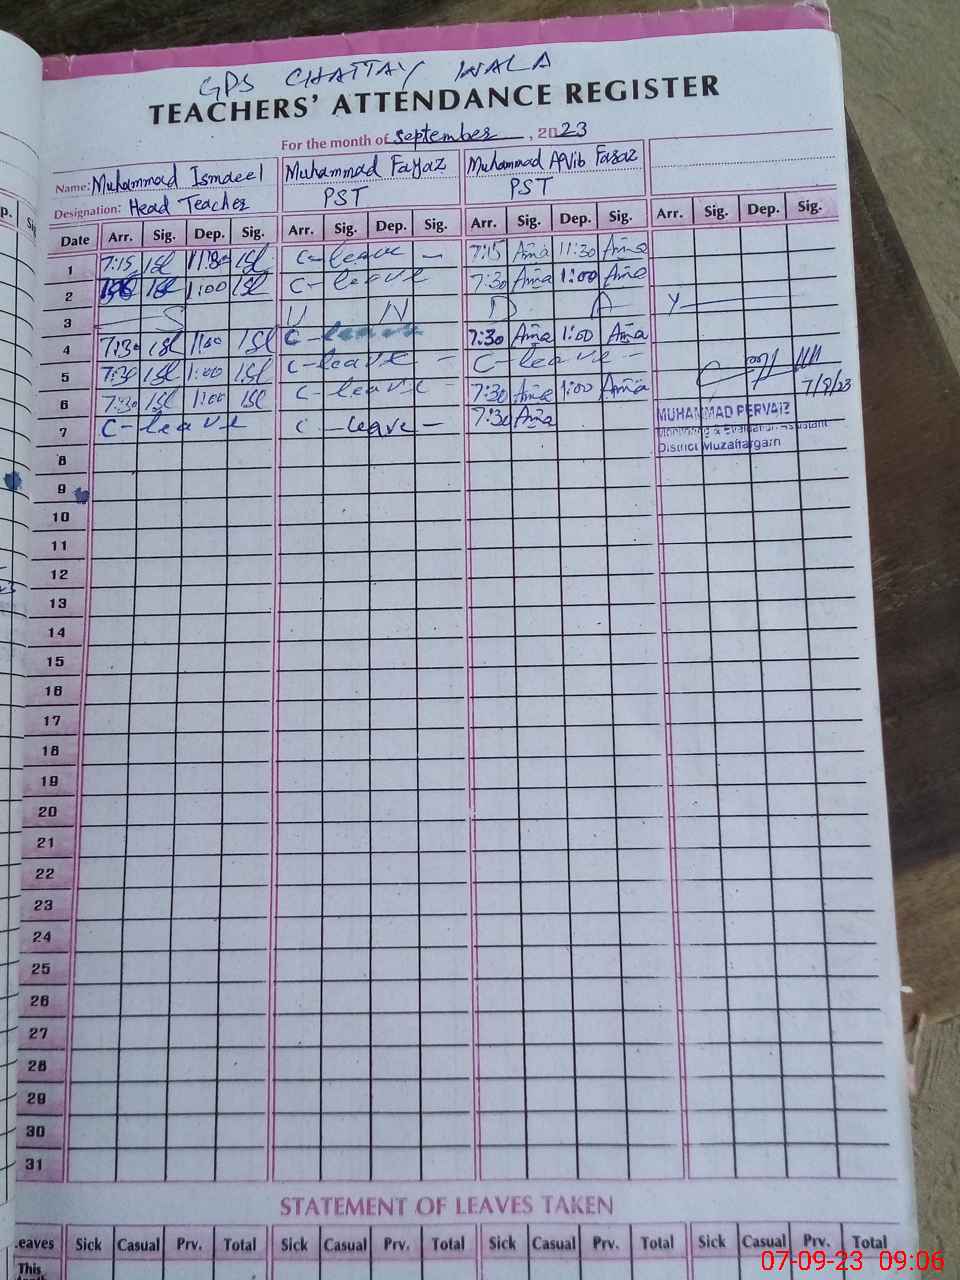 GPS CHATTAY WALA
TEACHERS' ATTENDANCE REGISTER
For the month of september, 2023
Name: Muhammad Ismaeel Muhammad Fayaz Muhammad
Designation: Head Teacher PST PST
Date Arr. Sig. Dep. Sig. Arr. Sig. Dep. Sig. Arr. Sig. Dep. Sig. Arr. Sig. Dep. Sig.
1 7:15 11:30 C-leave - 7:15 11:30
2 1:00 C-leave 7:30 1:00
3 S U N D A Y
4 7:30 1:00 C-leave 7:30 1:00
5 7:30 1:00 C-leave - C-leave -
6 7:30 1:00 C-leave - 7:30 1:00
7 C-leave C-leave - 7:30
MUHAMMAD PERVAIZ
Monitoring & Evaluation Assistant
District Muzaffargarh
8
9
10
11
12
13
14
15
16
17
18
19
20
21
22
23
24
25
26
27
28
29
30
31
STATEMENT OF LEAVES TAKEN
Leaves Sick Casual Prv. Total Sick Casual Prv. Total Sick Casual Prv. Total Sick Casual Prv. Total
This
07-09-23 09:06